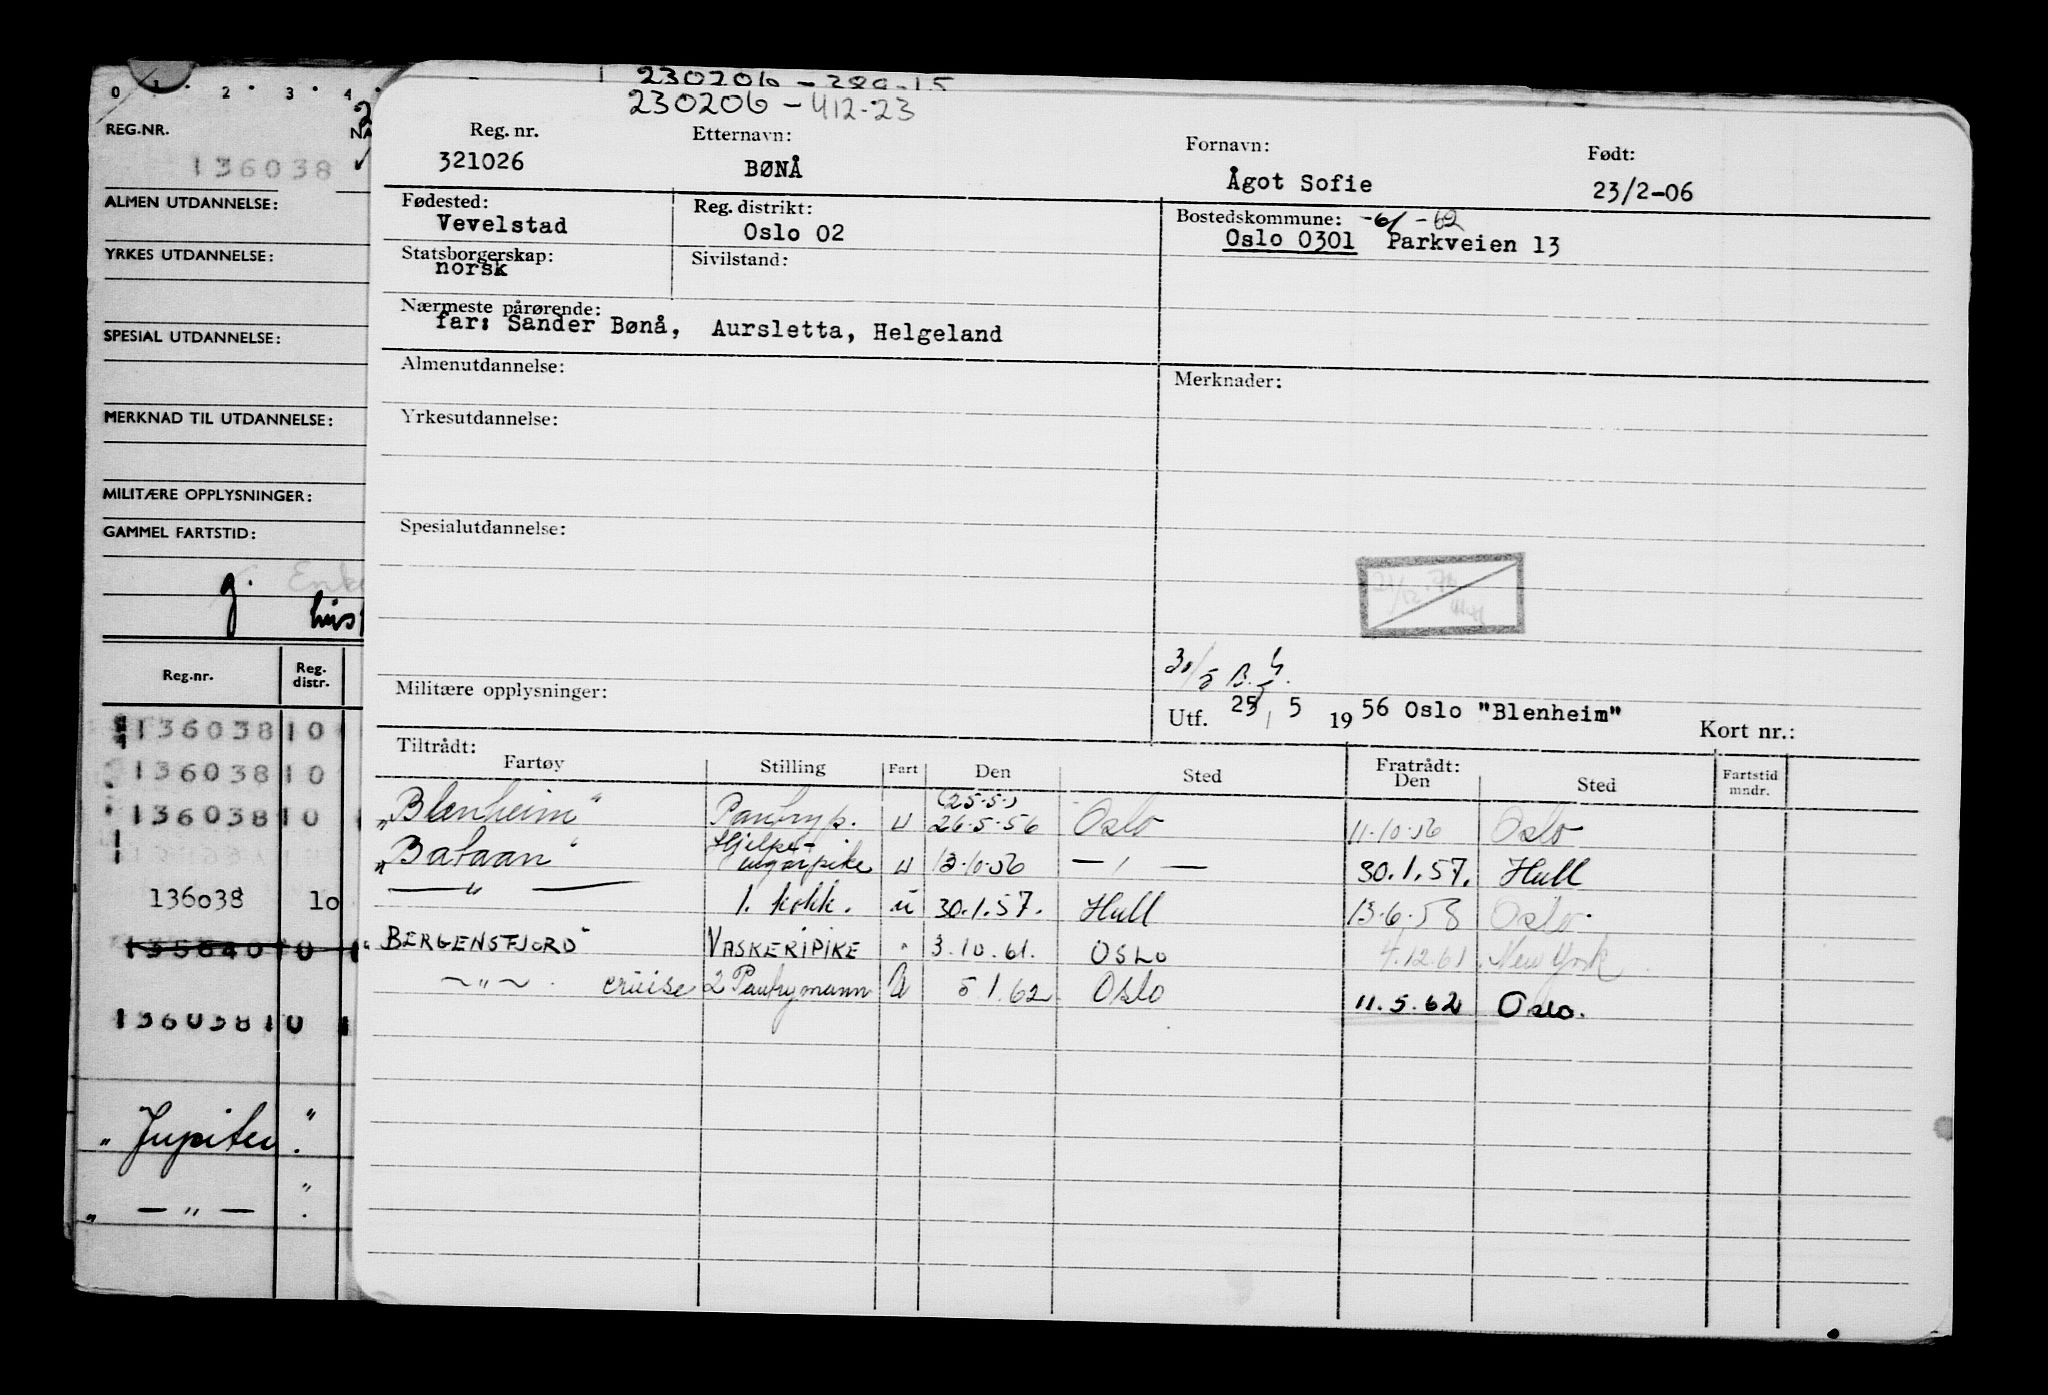 0 1 2 3 4
REG.NR.
136038
ALMEN UTDANNELSE:
YRKES UTDANNELSE:
SPESIAL UTDANNELSE:
MERKNAD TIL UTDANNELSE:
MILITÆRE OPPLYSNINGER:
GAMMEL FARTSTID:
g.
Reg.nr. Reg. distr.
136038 10
136038 10
136038 10
136038 10
136038 10
„Jupiter"
„ — " — "
230206 - 412-23
Reg. nr. Etternavn: Fornavn: Født:
321026 BØNÅ Ågot Sofie 23/2-06
Fødested: Reg. distrikt: Bostedskommune: -61 -62
Vevelstad Oslo 02 Oslo 0301 Parkveien 13
Statsborgerskap: Sivilstand:
norsk
Nærmeste pårørende:
far: Sander Bønå, Aursletta, Helgeland
Almenutdannelse: Merknader:
Yrkesutdannelse:
Spesialutdannelse:
Militære opplysninger:
Utf. 25 5 1956 Oslo "Blenheim" Kort nr.:
Tiltrådt: Fratrådt:
Fartøy Stilling Fart Den Sted Den Sted Fartstid mndr.
(25.5.)
„Blenheim" Pantryp. u 26.5.56 Oslo 11.10.56 Oslo
„Bataan" Hjelpe- ungpike u 13.10.56 — " — 30.1.57. Hull
— " — 1. kokk. u 30.1.57. Hull 13.6.58 Oslo.
"BERGENSFJORD" VASKERIPIKE " 3.10.61. OSLO 4.12.61. New York
— " — cruise 2 Pantrymann U 5 1.62 Oslo 11.5.62 Oslo.